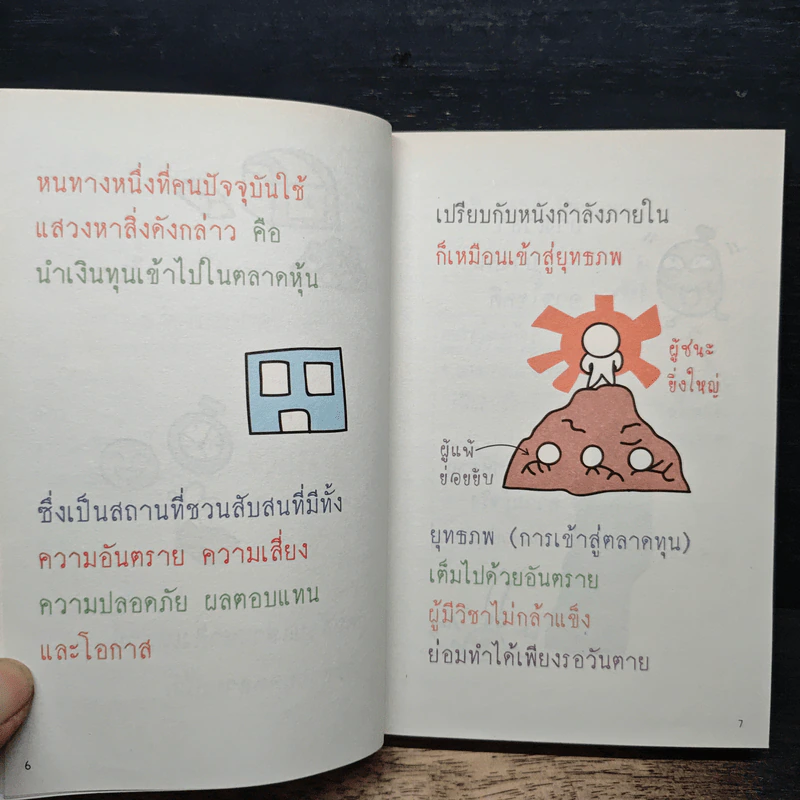 หนทางหนึ่งที่คนปัจจุบันใช้
แสวงหาสิ่งดังกล่าว คือ
นำเงินทุนเข้าไปในตลาดหุ้น
ซึ่งเป็นสถานที่ชวนสับสนที่มีทั้ง
ความอันตราย ความเสี่ยง
ความปลอดภัย ผลตอบแทน
และโอกาส
6
เปรียบกับหนังกำลังภายใน
ก็เหมือนเข้าสู่ยุทธภพ
ผู้ชนะ
ยิ่งใหญ่
ผู้แพ้
ย่อยยับ
ยุทธภพ (การเข้าสู่ตลาดทุน)
เต็มไปด้วยอันตราย
ผู้มีวิชาไม่กล้าแข็ง
ย่อมทำได้เพียงรอวันตาย
7